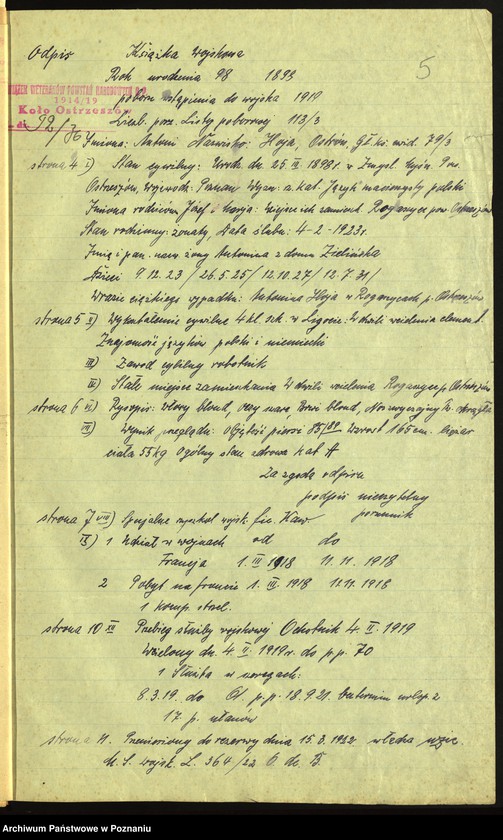 Odpis Książka Wojskowa
5
Rok urodzenia 98 1898
poboru wstąpienia do wojska 1919
ZWIĄZEK WETERANÓW POWSTAŃ NARODOWYCH R.P.
1914/19
Koło Ostrzeszów
L. dz. 92/36
Liczb. porz. Listy poborowej 113/3
Imiona: Antoni Nazwisko: Hoja, Ostrów, Gł. ks. ewid. 79/3
strona 4 I) Stan cywilny: Urodz. dn. 25 1898 r. w
Ostrzeszów, Wojewodz. Poznań Wyzn. rz. kat. Język macierzysty polski
Imiona rodziców Józef i Marja: miejsce ich zamieszk. Rogaszyce pow. Ostrzeszów
Stan rodzinny: żonaty, data ślubu: 4-2-1923 r.
Imię i pan. nazw. żony Antonina z domu Zielińska
Dzieci 9.12.23 / 26.5.25 / 12.10.27 / 12.7.31 /
W razie ciężkiego wypadku: Antonina Hoja w Rogaszycach p. Ostrzeszów
strona 5 II) Wykształcenie cywilne 4 kl. szk. w W chwili wcielenia element.
Znajomość języków polski i niemiecki
III) Zawód cywilny robotnik
IV) Stałe miejsce zamieszkania W chwili wcielenia Rogaszyce p. Ostrzeszów
strona 6 VI) Rysopis: włosy blond, oczy szare, Brwi blond, Nos zwyczajny tw. okrągła
VII) Wynik przeglądu: objętość piersi 85/89 Wzrost 165 cm. Ciężar
ciała 55 kg Ogólny stan zdrowia kat A
Za zgodą odpisu
podpis nieczytelny
porucznik
strona 7 VIII) Specjalne wyszkol. wojsk.
IX) 1 Udział w wojnach od do
Francja 1. III 1918 11.11.1918
2 Pobyt na froncie 1. III. 1918 11.11.1918
1 komp. strzel.
strona 10 XII Przebieg służby wojskowej Ochotnik 4. II. 1919
Wcielony dn. 4. II. 1919 r. do p.p. 70
1 Służba w szeregach:
8.3.19. do p.p. 18.9.21.
17. p. ułanów
strona 11. Przeniesiony do rezerwy dnia 15.3.1922
M. S. Wojsk. L. 364/22 O. de B.
Archiwum Państwowe w Poznaniu